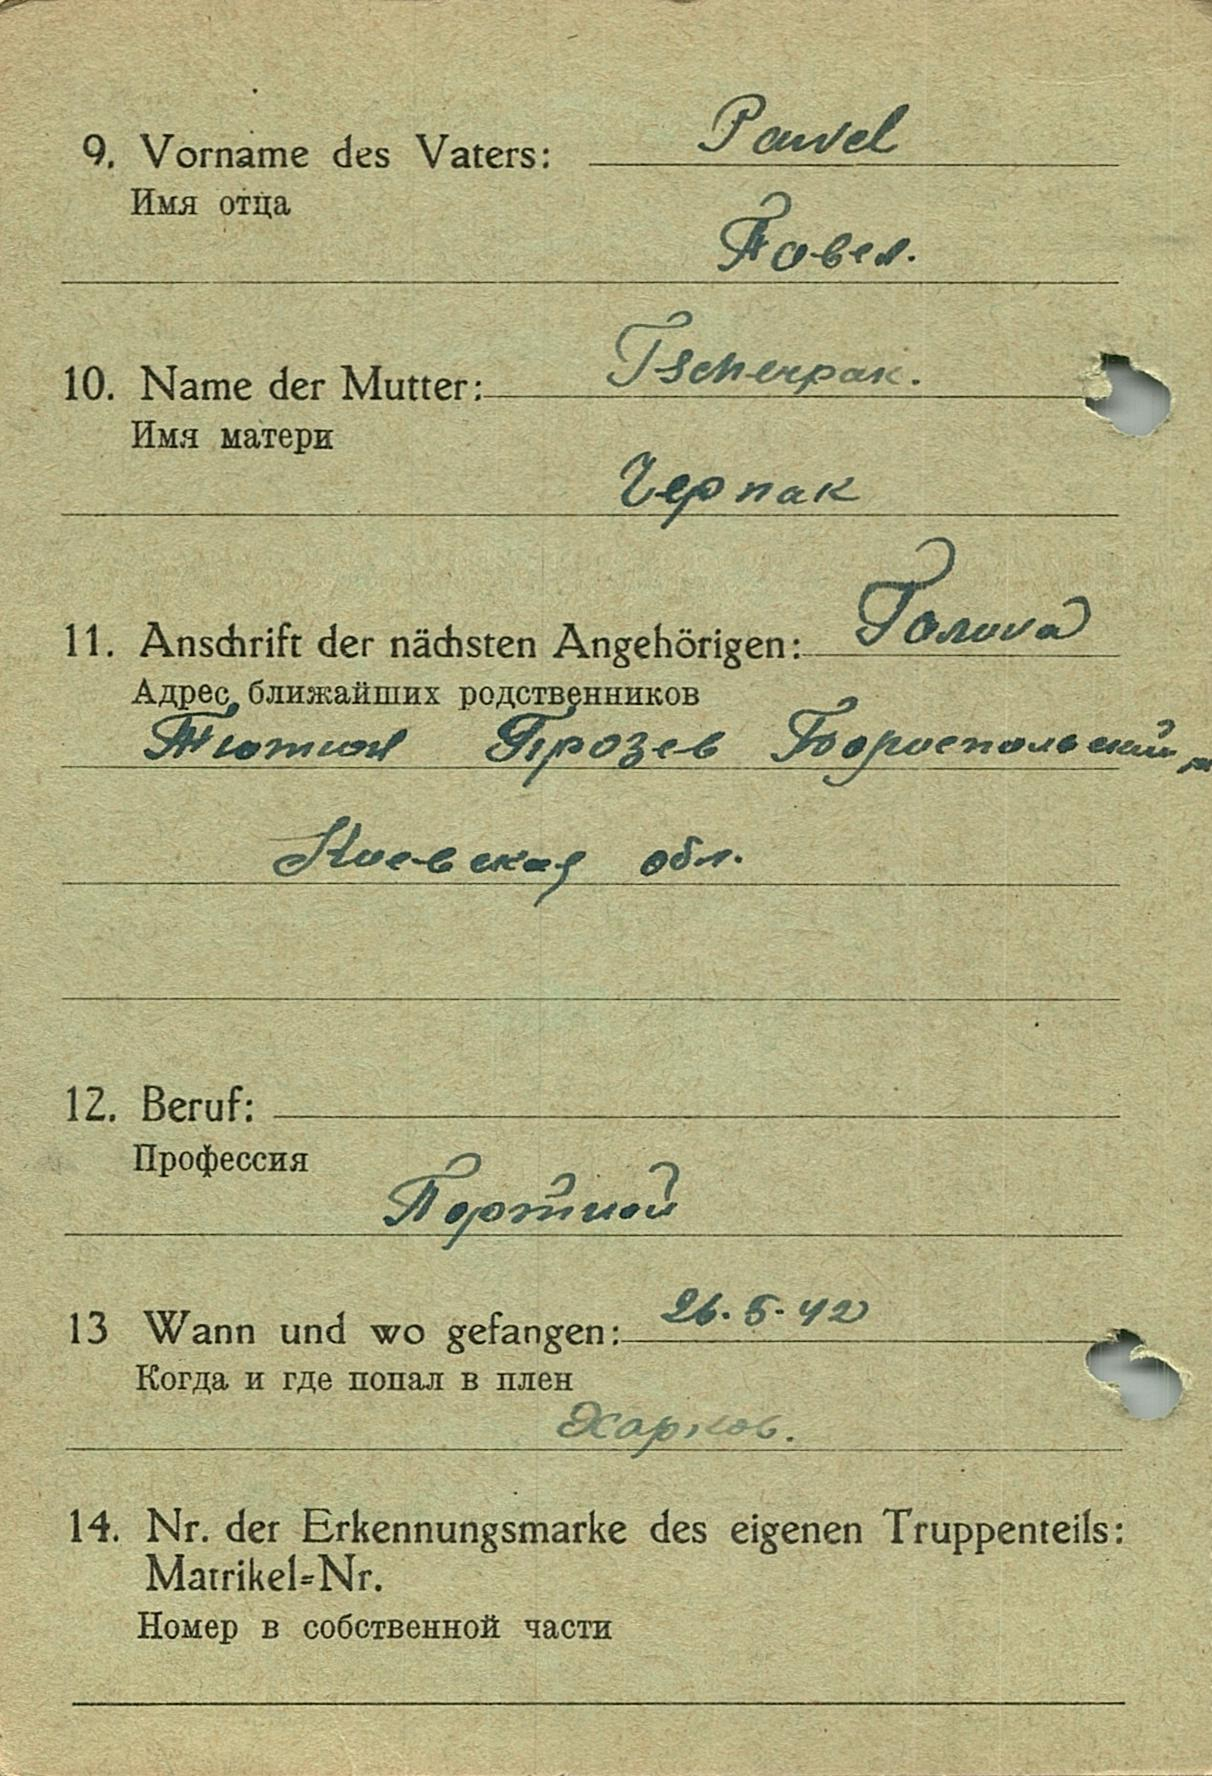 9. Vorname des Vaters: Pawel
Имя отца
Павел.
10. Name der Mutter: Tscherpak.
Имя матери
Черпак
11. Anschrift der nächsten Angehörigen: Галина
Адрес ближайших родственников
Бориспольский
Киевская обл.
12. Beruf:
Профессия
Портной
13 Wann und wo gefangen: 26.5.42
Когда и где попал в плен
Харков.
14. Nr. der Erkennungsmarke des eigenen Truppenteils:
Matrikel=Nr.
Номер в собственной части